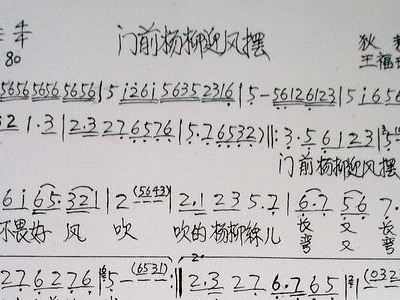 4/4 门前杨柳迎风摆 狄
80 王福
5656 5656 5656 | 5 i26i 56352316 | 5 - 56126123 | 5 i 656
32 1·3 | 2·3 27 6576 | 5·7 6532) ‖: 3·5 6 1 2 3 |
门前杨柳迎风摆
6 i 65·321 | 2 (5643) | 2·1 2 3 5·7 | 6·7 56 7·
不畏好风 吹 吹的杨柳绿儿 长又长
弯又弯
276276 | 5 - (6531) :‖ 2·3 27 6·765 | (032